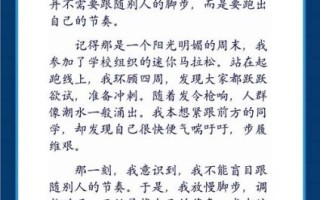 并不需要跟随别人的脚步，而是要跑出
自己的节奏。
记得那是一个阳光明媚的周末，我
参加了学校组织的迷你马拉松。站在起
跑线上，我环顾四周，发现大家都跃跃
欲试，准备冲刺。随着发令枪响，人群
像潮水一般涌出。我本想紧跟前方的同
学，却发现自己很快便气喘吁吁，步履
维艰。
那一刻，我意识到，我不能盲目跟
随别人的节奏。于是，我放慢脚步，调